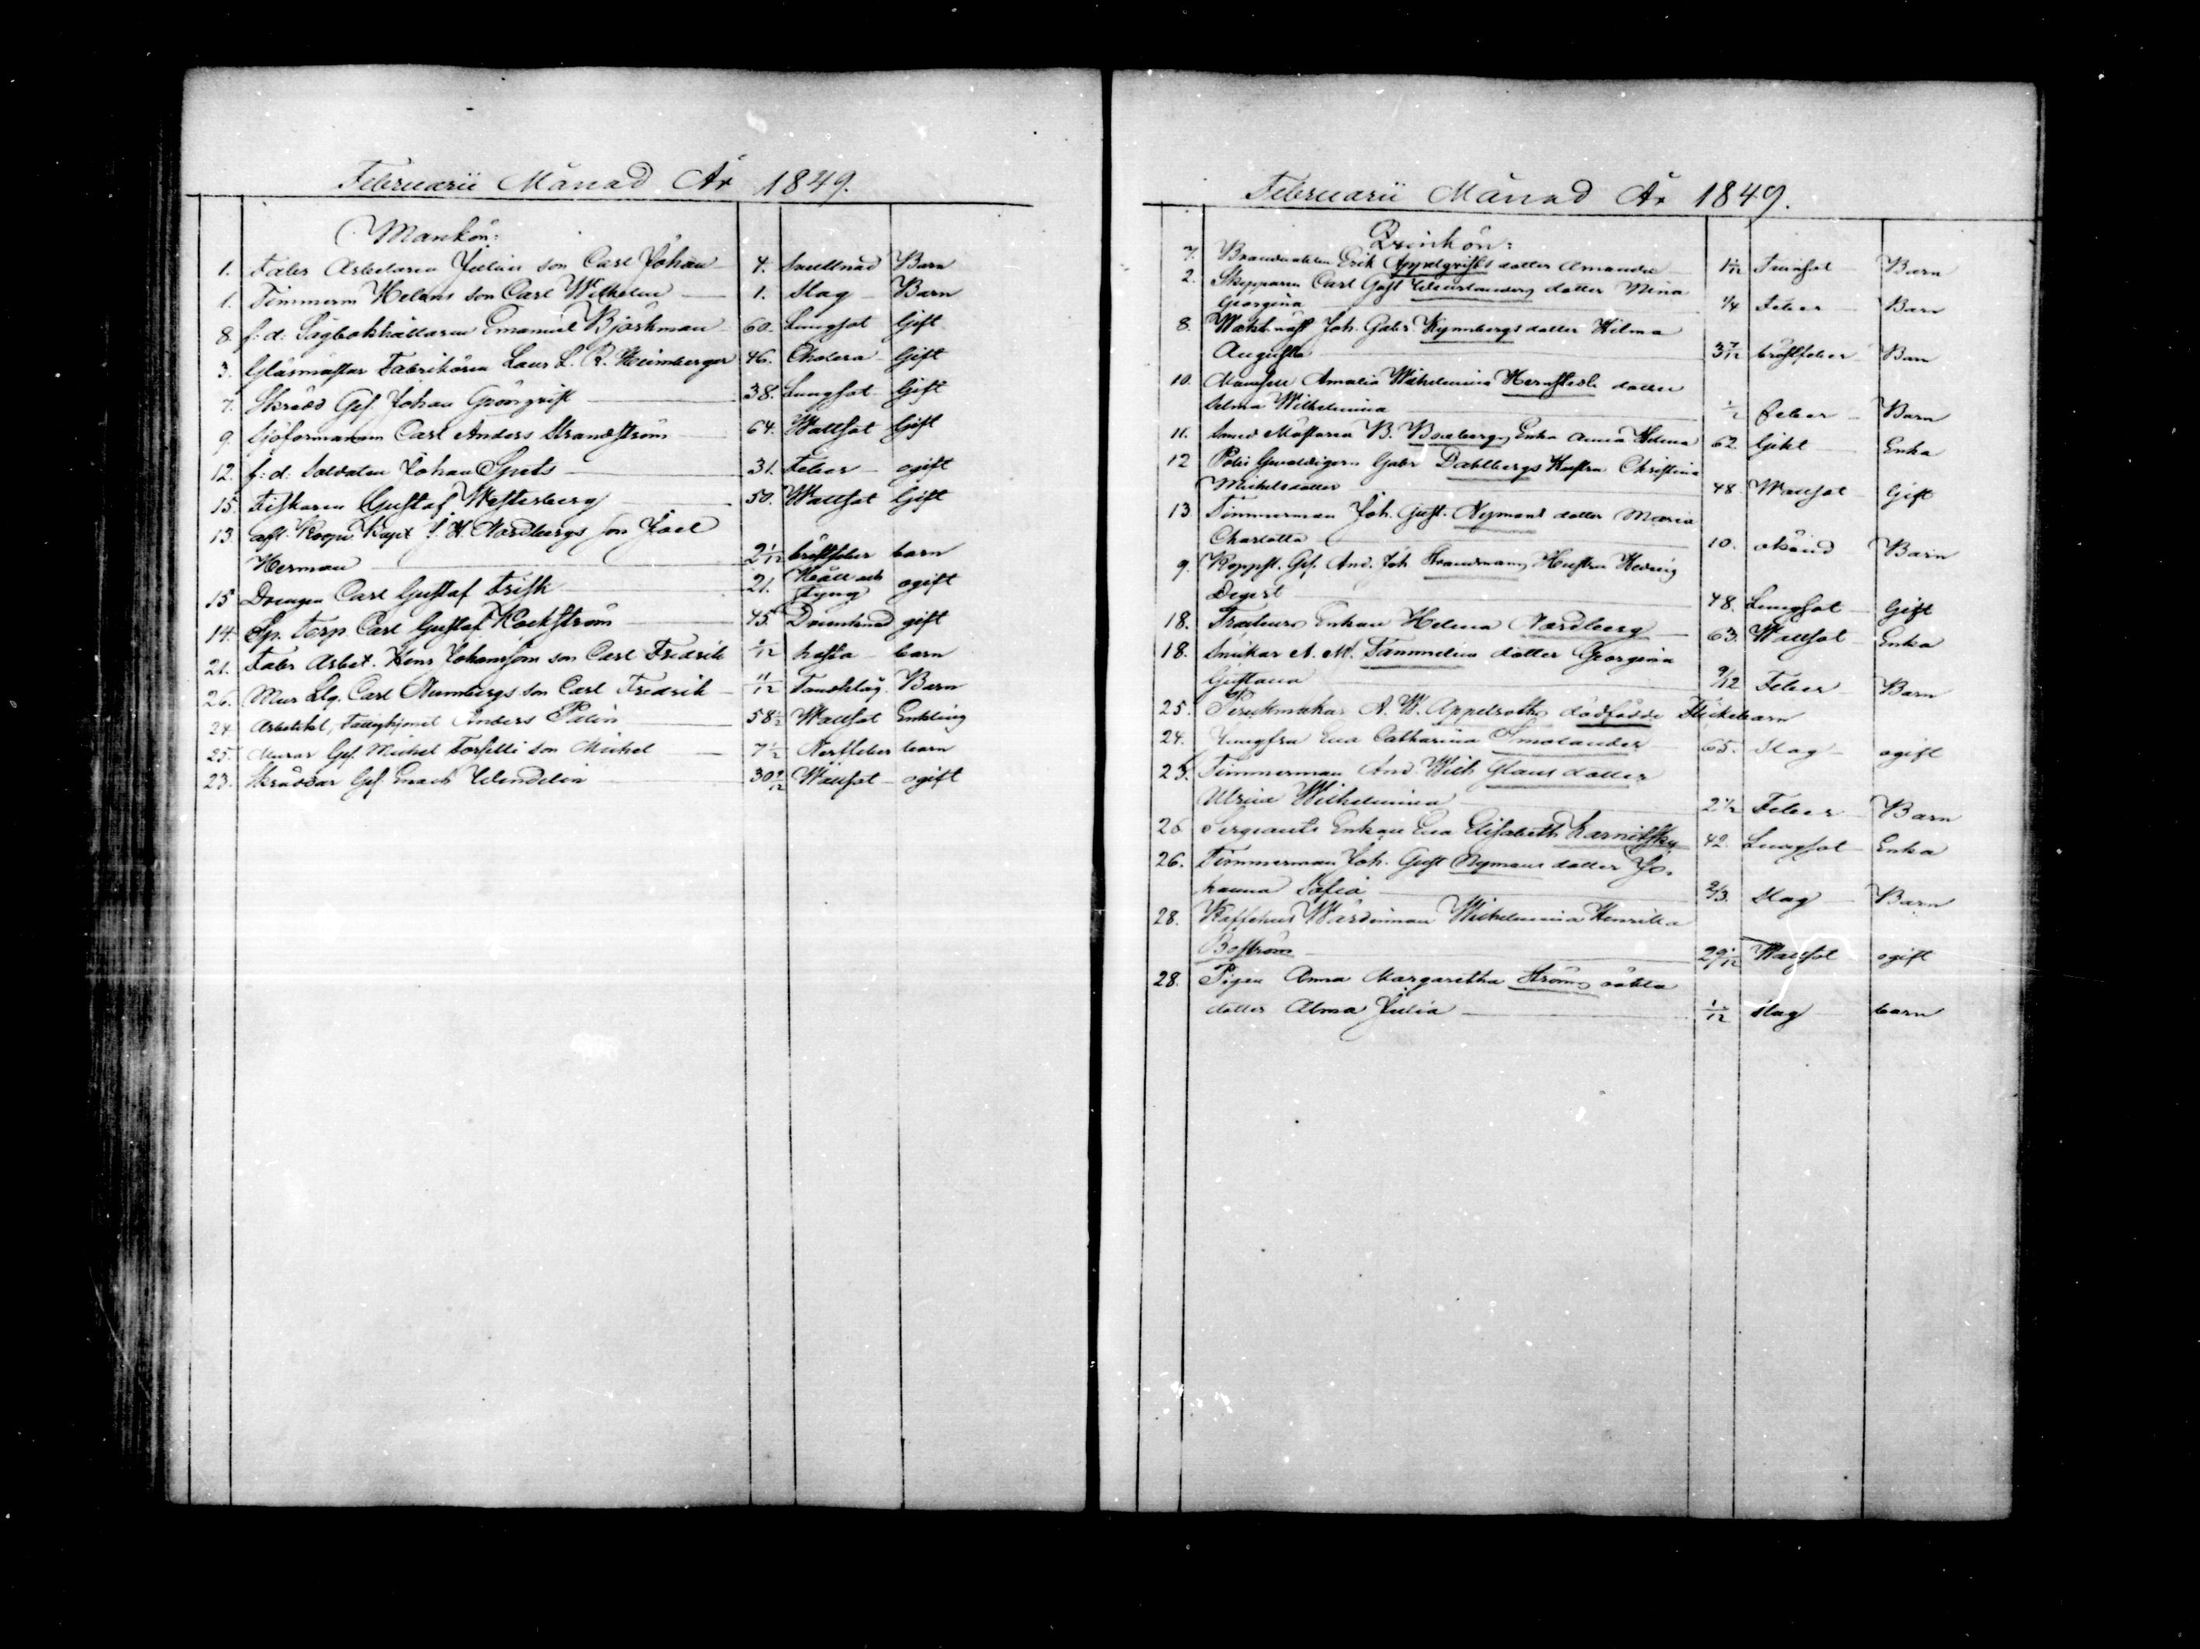 Februarii Månad År 1849.
Mankön:
1. Fabr Arbetaren Julins son Carl Johan 4. Swullnad Barn
1. Timmerm Helans son Carl Wilhelm 1. Slag Barn
8. f: d: Emanuel Björkman 60. Lungsot Gift
3. Glasmästar Fabrikören Laur L. R. Heimberger 46. Cholera Gift
7. Skrädd Ges. Johan Grönqvist 38. Lungsot Gift
9. Sjöformannen Carl Anders Strandström 64. Wattsot Gift
12. f: d: Soldaten Johan Spets 31. Feber ogift
15. Fiskaren Gustaf Westerberg 50. Wattsot Gift
13. Kapt J. H. Nordbergs son Joel
Herman 2 1/12 bröstfeber barn
15 Drengen Carl Gustaf Frisk 21. Håll och styng ogift
14. Sp. Torp. Carl Gustaf Kockström 45. Drunknad gift
21. Fabr Arbet. Hens Johanssons son Carl Fredrik /12 hosta barn
26. Mur Lg. Carl Numbergs son Carl Fredrik 11/12 Tandslag. Barn
24. Fattighjonet Anders Palin 58 1/2 Wattsot Enkling
25. Murar Ges. Michel Forsells son Michel 7 1/2 Nerffeber barn
23. Skräddar Ges Enach Wendelin 30 /12 Wattsot ogift
Februarii Månad År 1849.
Qvinkön:
7. Brandvakten Erik Appelqvists dotter Amanda 1 1/12 Barn
2. Skepparen Carl Gust dotter Mina
Georgina 1/4 Feber Barn
8. Joh. Gabr. Kynnbergs dotter Hilma
Augusta 3 7/12 bröstfeber Barn
10. Mamsell Amalia Wilhelmina dotter
Selma Wilhelmina 1/2 feber Barn
11. Smed Mästaren B. Boxbergs Enka Anna Helena 62 Gikt Enka
12 Polis Gevaldigern Gabr Dahlbergs Hustru Christina
Michelsdotter 48 Wattsot Gift
13. Timmerman Joh. Gust. Nymans dotter Maria
Charlotta 10. okänd Barn
9. Ges. And. Joh Strandmans Hustru Hedvig
Degert 48. Lungsot Gift
18. Enkan Helena Nordberg 63. Wattsot Enka
18. Snickar A. M. Tammelins dotter Georgina
Gustava 9/12 Feber Barn
25. Perukmakar A. W. Appelroths dödfödde Flickebarn
24. Jungfru Eva Catharina Smolander 65. Slag ogift
25. Timmerman And. Wilh Glans dotter
Ulrica Wilhelmina 2 1/2 Feber Barn
26 Sergeants Enkan Eva Elisabeth Karnitsky 42. Lungsot Enka
26. Timmerman Joh. Gust Nymans dotter Jo-
hanna Sofia 2/3. Slag Barn
28. Kaffehus Wärdinnan Wilhelmina Henrika
Boström 29 1/12 Wattsot ogift
28. Pigan Anna Margaretha Ströms oäkta
dotter Alma Julia 1/12 slag barn